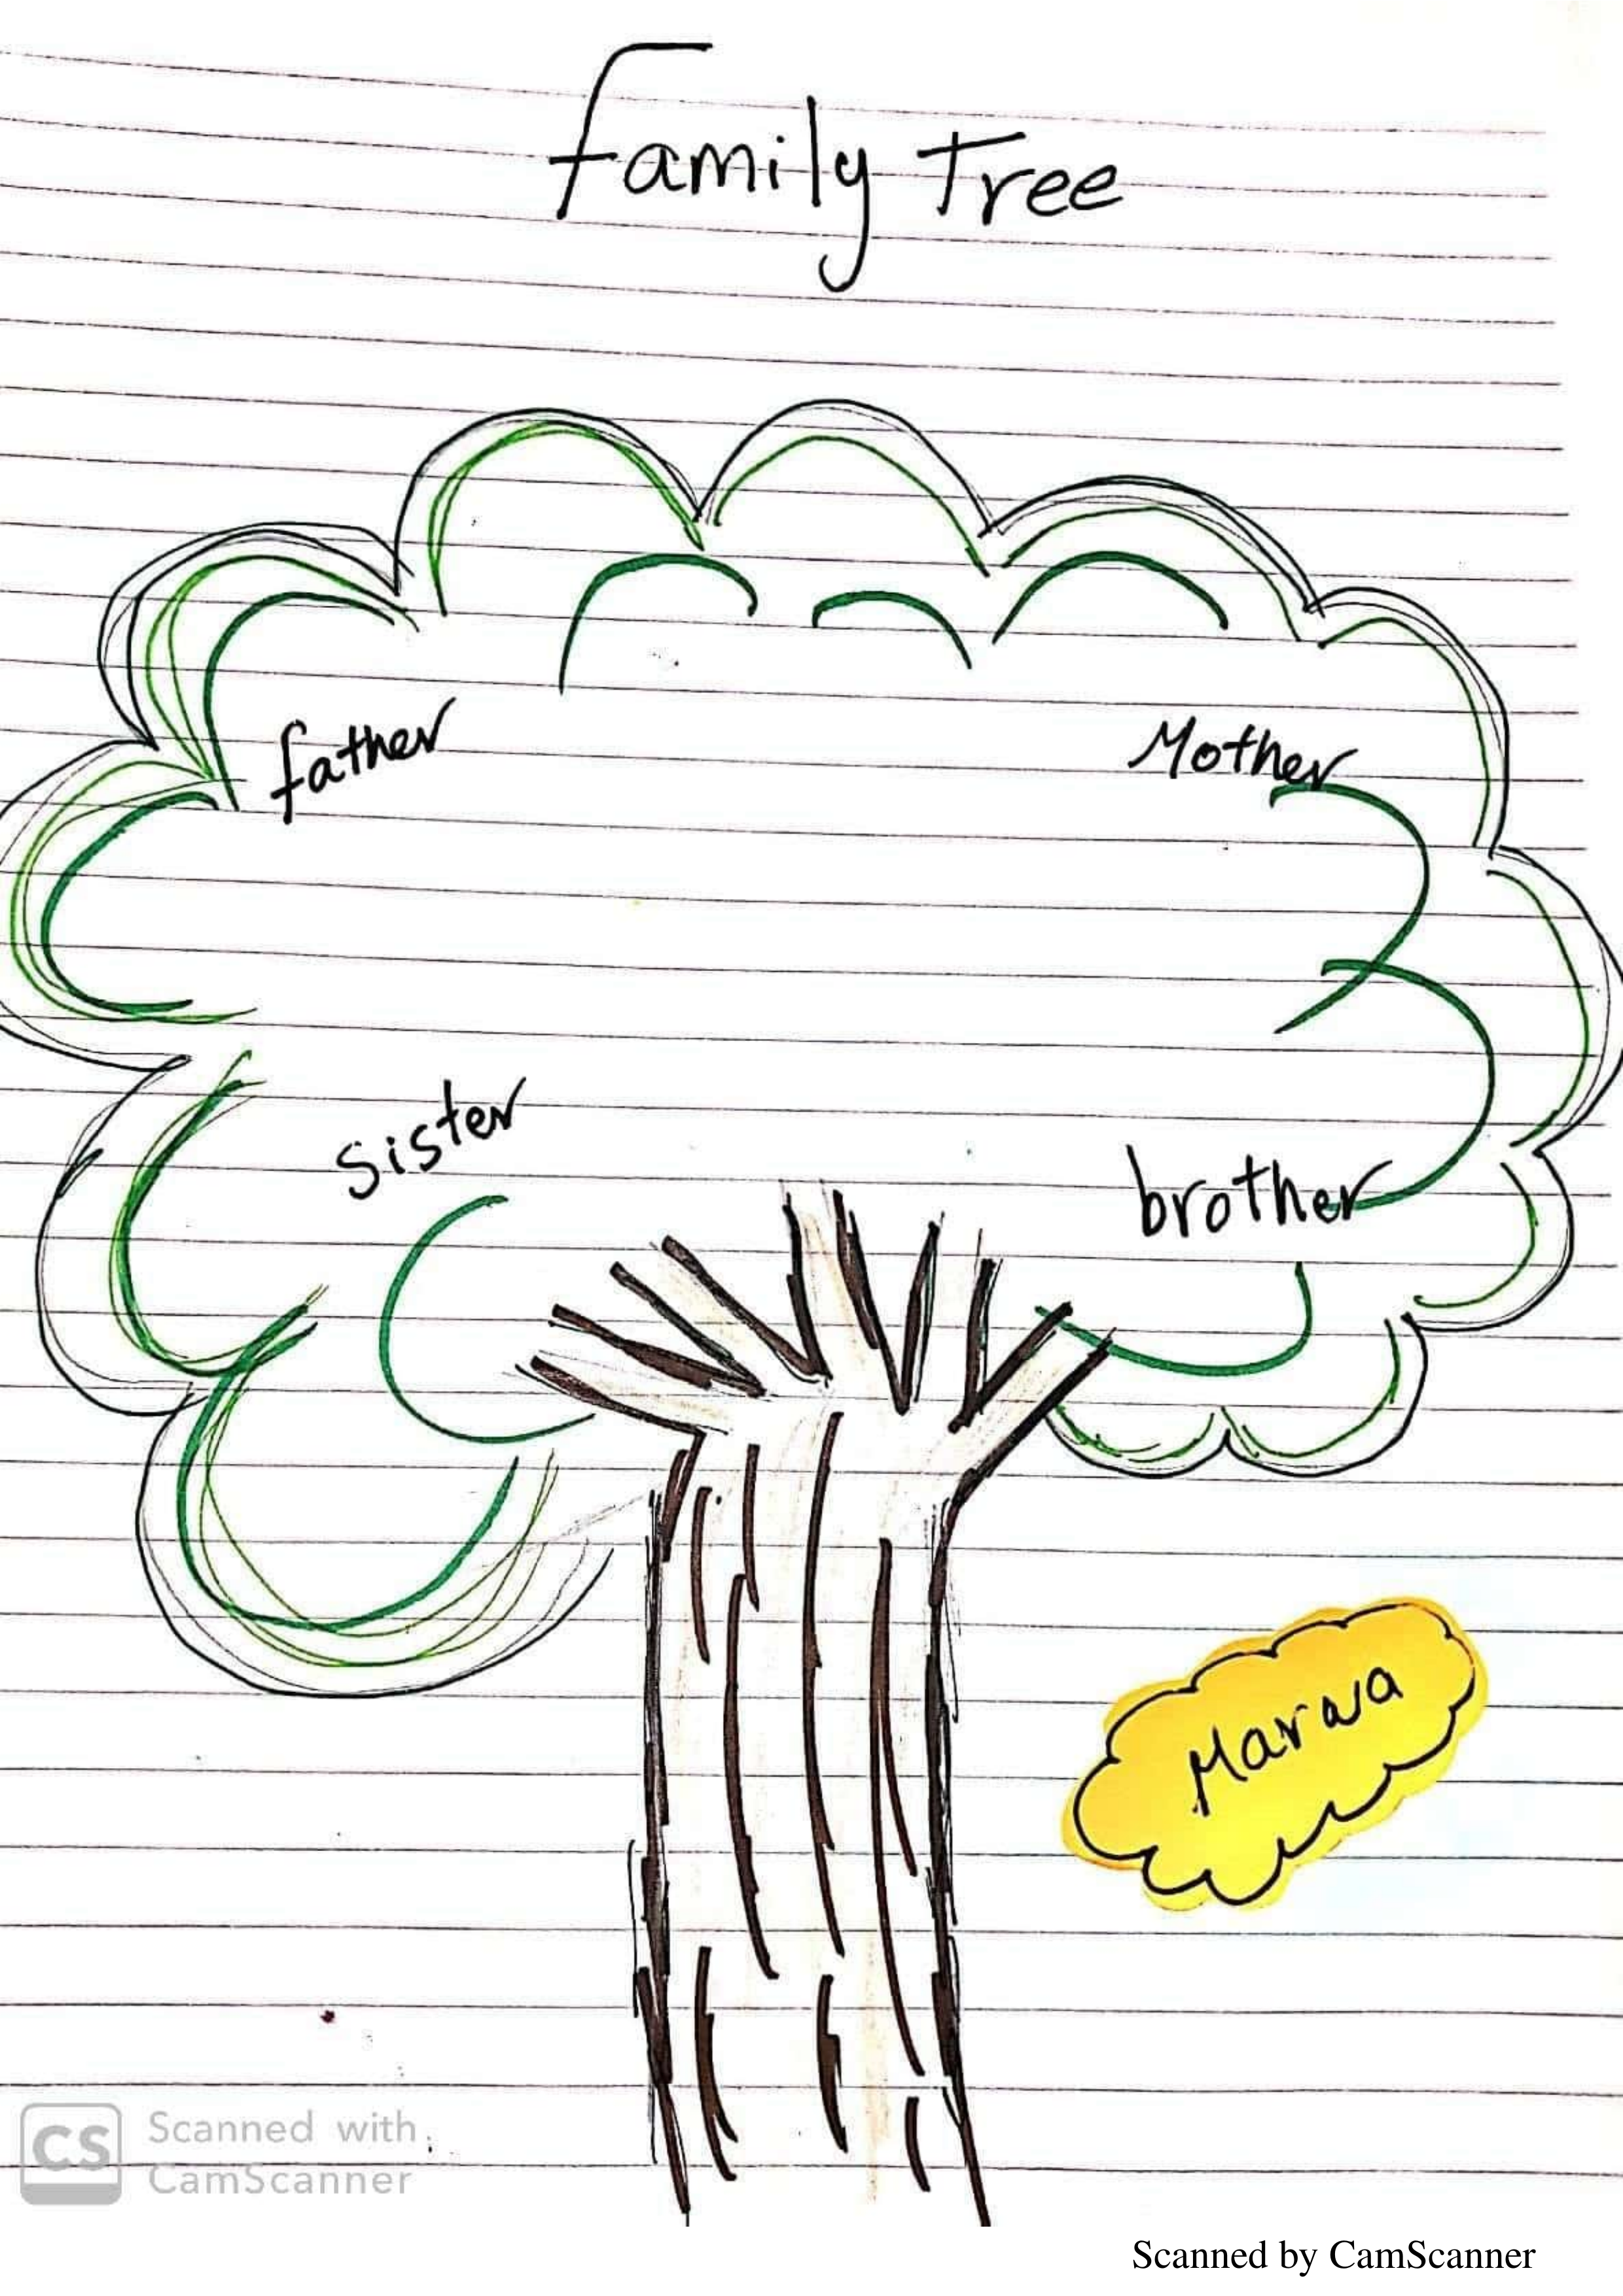 Family Tree
father
Mother
sister
brother
Marwa
CS
Scanned with
CamScanner
Scanned by CamScanner